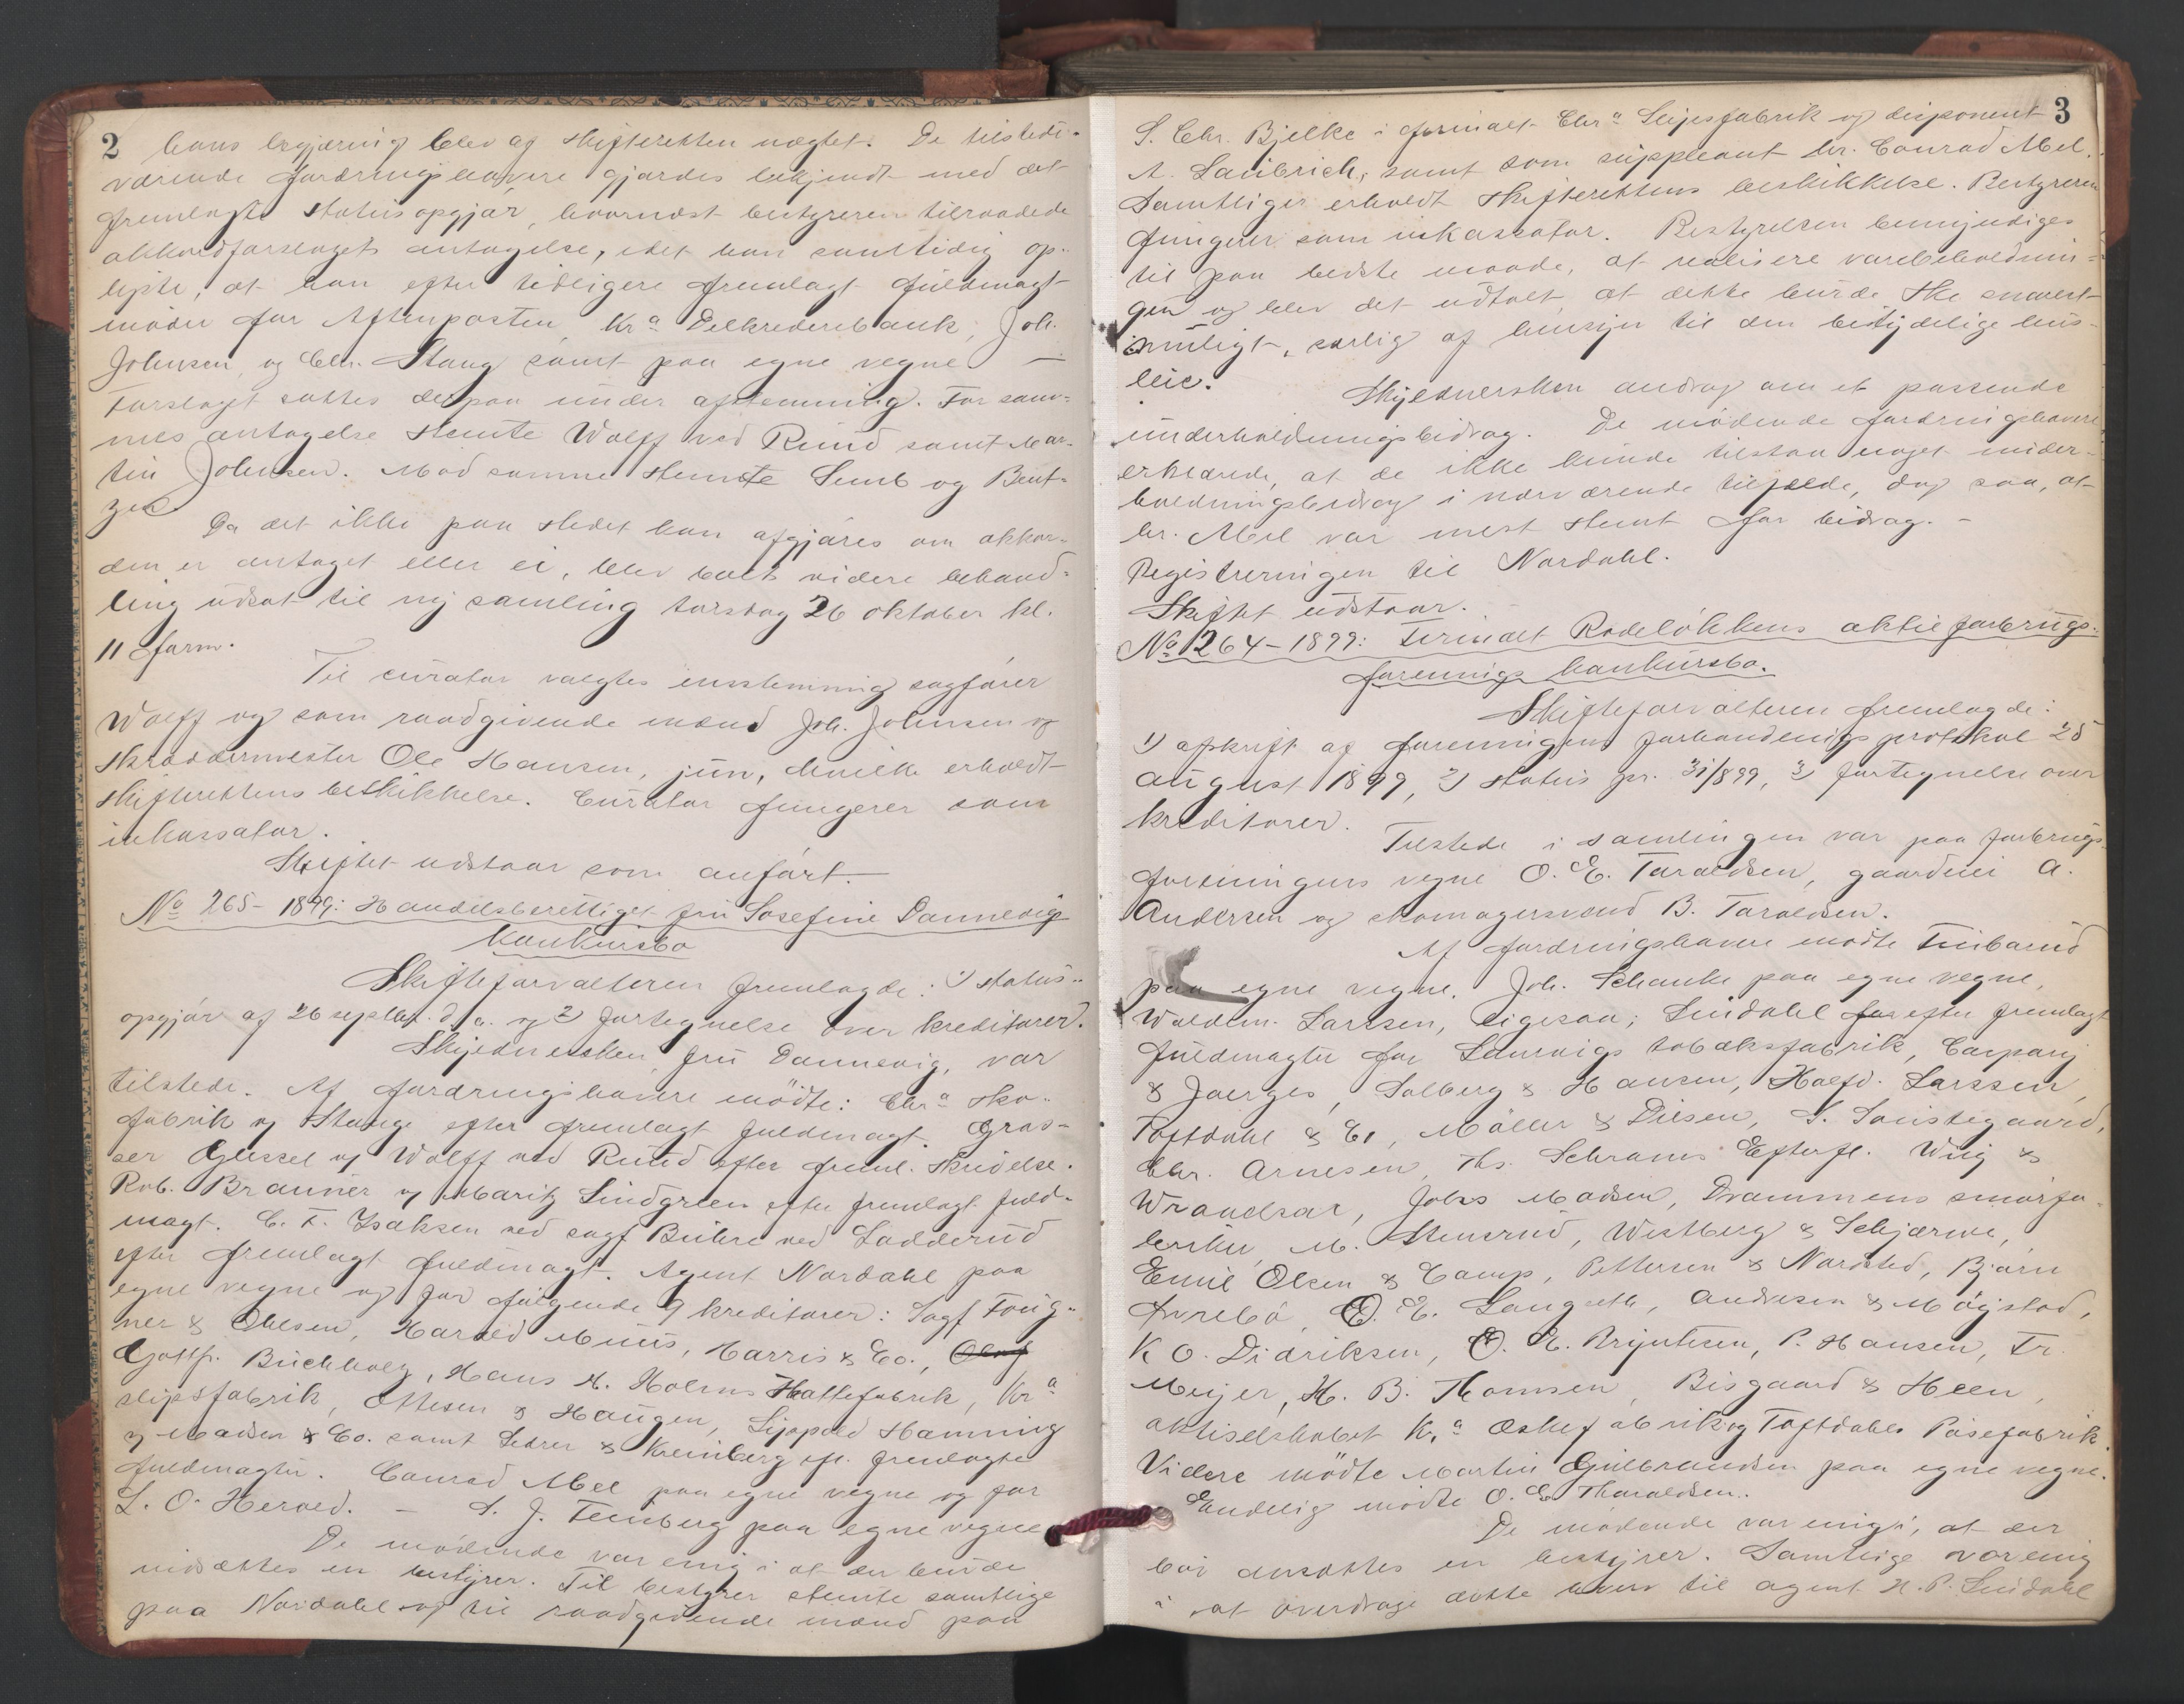 2
hans begjæring blev af skifteretten nægtet. De tilstede-
værende fordringshavere gjordes bekjendt med det
fremlagte statusopgjør, hvornæst bestyreren tilraadede
akkordforslagets antagelse, idet han samtidig op-
lyste, at han efter tidligere fremlagt fuldmagt
møder for Aftenposten, Kra Delkrederebank, Joh.
Johnsen, og Chr. Stang samt paa egne vegne –
Forslaget sattes derpaa under afstemning. For sam-
mes antagelse stemte Wolff ved Ruud samt Mar-
tin Johnsen. Mod samme stemte Semb og Bent-
zen.
Da det ikke paa stedet kan afgjøres om akkor-
den er antaget eller ei, blev boets videre behand-
ling udsat til ny samling torsdag 26 oktober kl.
11 form.
Til curator valgtes enstemmig sagfører
Wolff og som raadgivende mænd Joh. Johnsen og
skræddermester Ole Hansen, jun, hvilke erholdt
skifterettens beskikkelse. Curator fungerer som
inkassator.
Skiftet udstaar som anført.
No 265-1899: Handelsberettiget fru Josefine Dannevigs
konkursbo
Skifteforvalteren fremlagde: 1) status-
opgjør af 26 septbr. d. a. og 2) fortegnelse over kreditorer.
Skyldnersken, fru Dannevig, var
tilstede. Af fordringshavere mødte: Chra Sko-
fabrik og Stange efter fremlagt fuldmagt. Gros-
ser Gussel og Wolff ved Ruud efter freml. skrivelse.
Rob. Brauner og Moritz Lindgreen efter fremlagt fuld-
magt. C. F. Isaksen ved sagf Buhre ved Ladderud
efter fremlagt fuldmagt. Agent Nordahl paa
egne vegne og for følgende 9 kreditorer: Sagf Foug-
ner & Ohlsen, Harald Muus, Harris & Co., Olaf
Gottfr. Buchholz, Hans H. Holms Hattefabrik, Kra
slipsfabrik, Ottesen & Haugen, Lippold Hamming
og Madsen & Co. samt Ledrer & Kremberg efr. fremlagte
fuldmagter. Conrad Mel paa egne vegne og for
L. O. Herold. – S. J. Feinberg paa egne vegne
De mødende var enig i at der burde
indsættes en bestyrer. Til bestyrer stemte samtlige
paa Nordahl og til raadgivende mænd paa
3
S. Chr. Bjelke i firmaet Chra Slipsfabrik og disponent
A. Laubrich, samt som suppleant hr. Conrad Mel.
Samtliger erholdt skifterettens beskikkelse. Bestyreren
fungerer som inkassator. Bestyrelsen bemyndiges
til paa bedste maade, at realisere varebeholdnin-
gen og blev det udtalt, at dette burde ske snarest
muligt, særlig af hensyn til den betydelige hus-
leie.
Skyldnersken androg om et passende
underholdningsbidrag. De mødende fordringshavere
erklærede, at de ikke kunde tilstaa noget under-
holdningsbidrag i nærværende tilfælde, dog saa, at
hr. Mel var mest stemt for bidrag. –
Registreringen til Nordahl.
Skiftet udstaar. –
No 264-1899: Firmaet Rodeløkkens aktieforbrugs-
forenings konkursbo.
Skifteforvalteren fremlagde:
1) afskrift af foreningens forhandlingsprotokol 25
august 1899, 2) status pr. 31/8 99, 3) fortegnelse over
kreditorer.
Tilstede i samlingen var paa forbrugs-
foreningens vegne O. E. Taraldsen, gaardeier A.
Andersen og skomagersvend B. Taraldsen.
Af fordringshavere mødte Finbarud
paa egne vegne. Joh. Schanke paa egne vegne,
Waldem. Larssen, ligesaa; Lindahl for efter fremlagt
fuldmagter for Laurvigs tobaksfabrik, Carpanj
& Joerges, Solberg & Hansen, Halfd. Larssen,
Toftdahl & Co, Møller & Diesen, S. Sonstegaard,
Chr. Arnesen, Ths. Schrams Efterfl. Wiig &
Wrandsar, Johs Madsen, Drammens smørfa-
briker, M. Stensrud, Westberg & Schjærve,
Emil Olsen & Comp, Pettersen & Narssted, Bjørn
Aurebø, O. E. Langseth, Andresen & Møgstad,
K O. Didriksen, O. E. Brynteson, P. Hansen, Fr.
Meyer, H. B. Thomsen, Bisgaard & Heen,
aktiselskabet K.a Æskefabrik og Toftdahls Posefabrik.
Videre mødte Martin Gulbrandsen paa egne vegne.
Endelig mødte O. E. Tharaldsen.
De mødende var enig i, at der
bør ansættes en bestyrer. Samtlige var enig
i at overdrage dette hverv til agent H. P. Lindahl